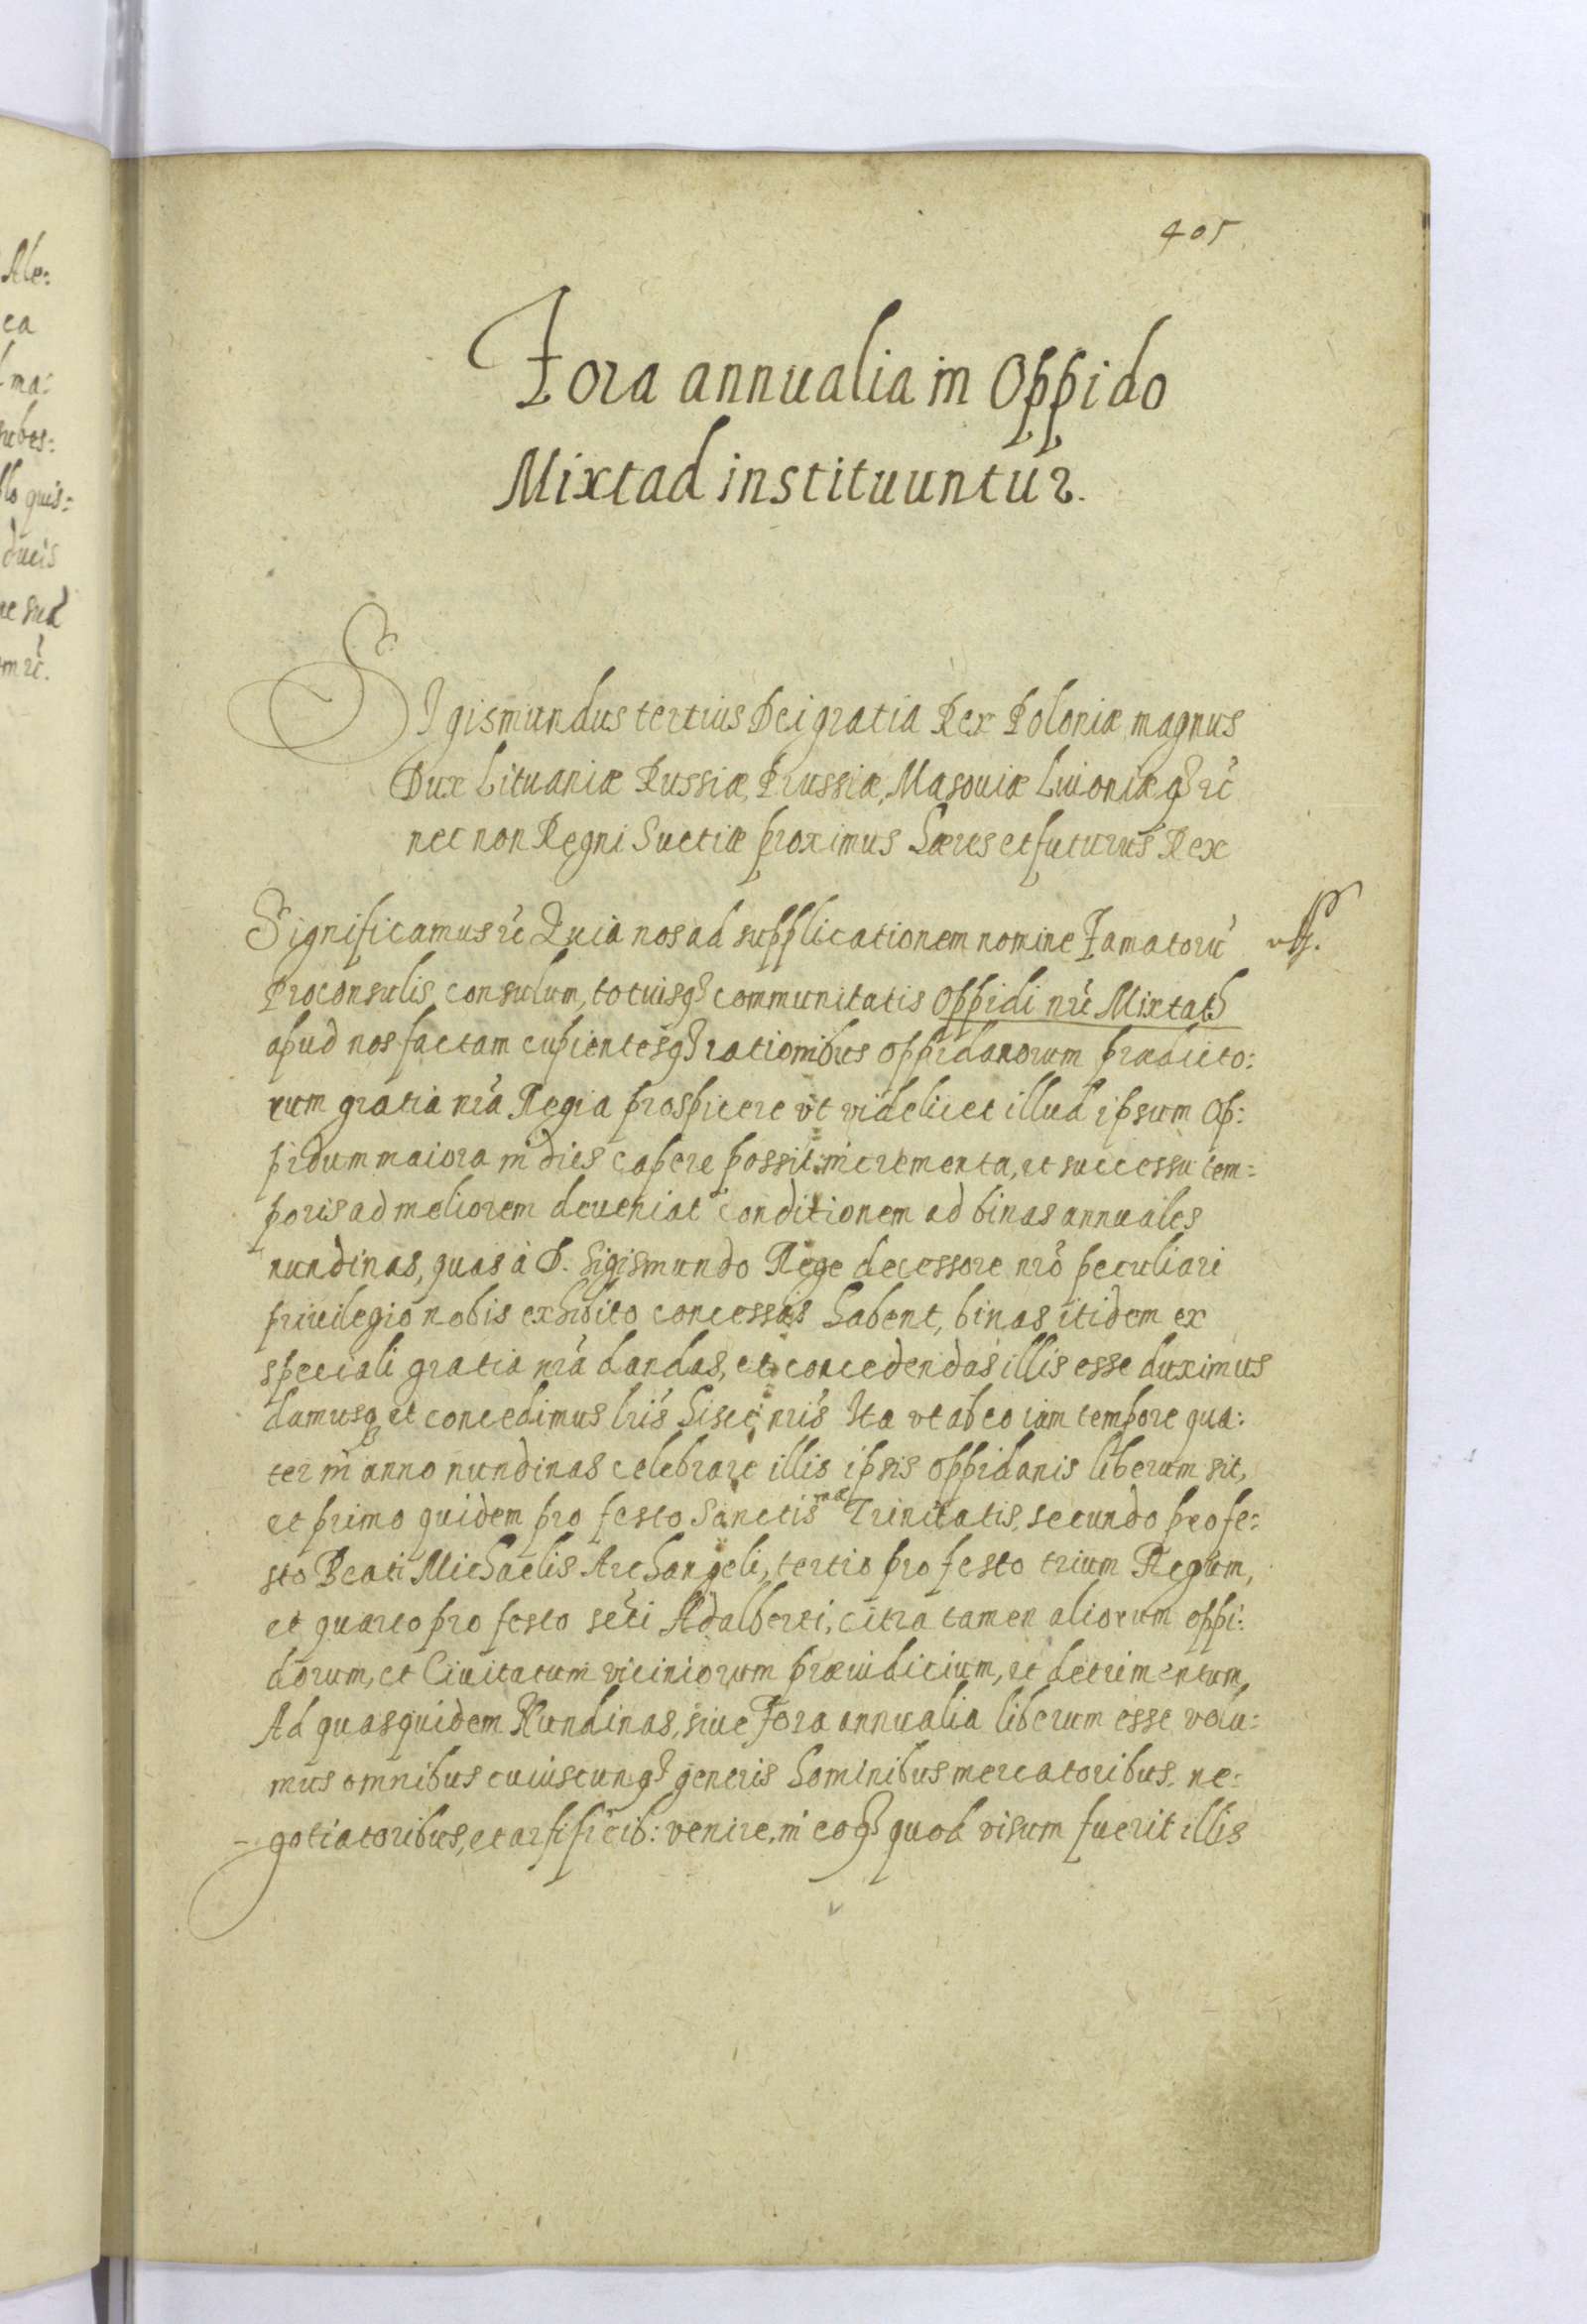 405
Fora annualia in Oppido
Mixtad instituuntur.
SIgismundus tertius Dei gratia Rex Poloniæ, magnus
Dux Lituaniæ Russiæ, Prussiæ, Masouiæ Liuoniæq₃ rc̃
nec non Regni Suetiæ proximus hæres et futurus Rex
Significamus rc̃ Quia nos ad supplicationem nomine Famatorũ
Proconsulis, consulum, totiusq₃ communitatis oppidi nri̅ Mixtath
apud nos factam cupientesq₃ rationibus oppidanorum prædicto:
rum gratia nrã Regia prospicere vt videlicet illud ipsum op:
pidum maiora in dies capere possit incrementa, et successu tem=
poris ad meliorem deueniat conditionem ad binas annuales
nundinas, quas à D. Sigismundo Rege decessore nrõ peculiari
priuilegio nobis exhibito concessas habent, binas itidem ex
speciali gratia nrã dandas, et concedendas illis esse duximus
damusq₃ et concedimus lrĩs hisce nrĩs Ita vt ab eo iam tempore qua:
ter in anno nundinas celebrare illis ipsis oppidanis liberum sit,
et primo quidem pro festo Sanctissmae Trinitatis, secundo pro fe:
sto Beati Michaelis Archangeli, tertio pro festo trium Regum,
et quarto pro festo sc̃ti Adalberti, citra tamen aliorum oppi:
dorum, et Ciuitatum viciniorum præiudicium, et detrimentum,
Ad quasquidem Nundinas, siue Fora annualia liberum esse volu:
mus omnibus cuiuscunq₃ generis hominibus mercatoribus, ne:
gotiatoribus, et artificib: venire, in eoq₃ quod visum fuerit illis
Ale:
ca
ma:
quis:
ducis